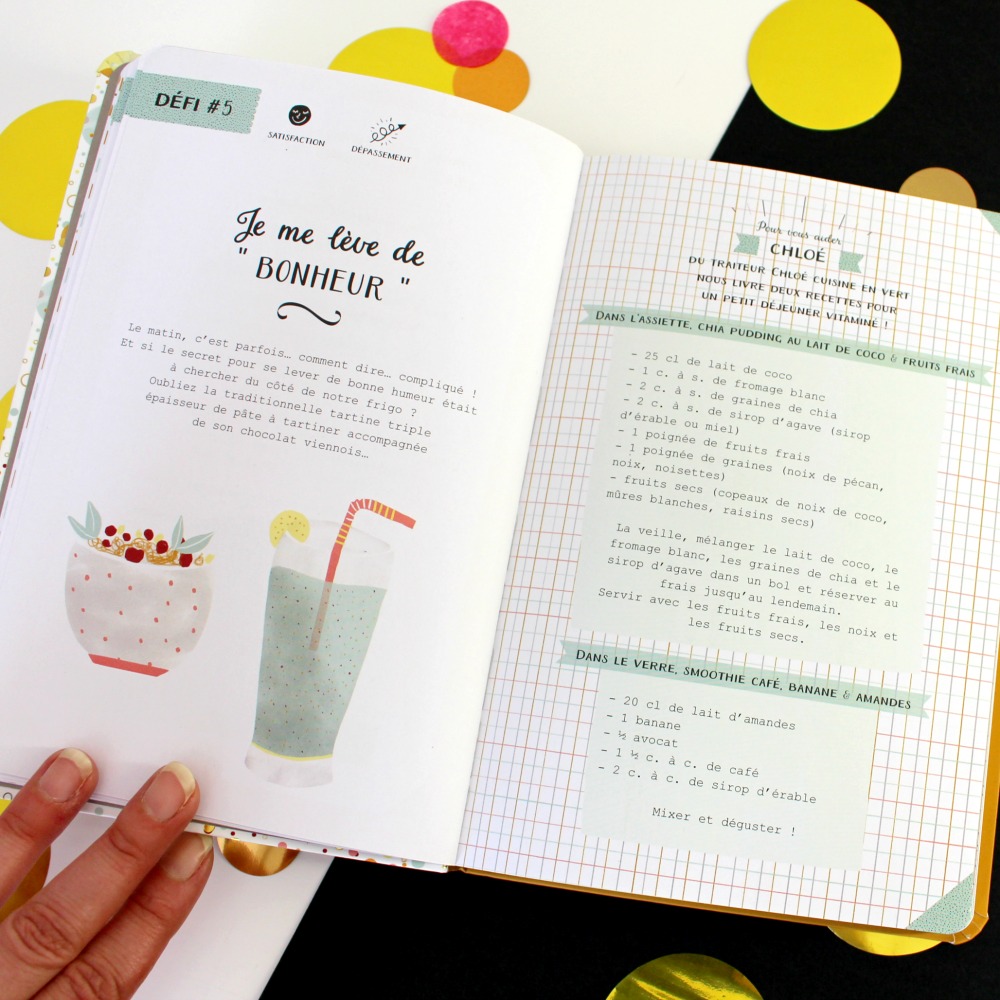 DÉFI #5
SATISFACTION
DÉPASSEMENT
Je me lève de
" BONHEUR "
Le matin, c'est parfois… comment dire… compliqué !
Et si le secret pour se lever de bonne humeur était
à chercher du côté de notre frigo ?
Oubliez la traditionnelle tartine triple
épaisseur de pâte à tartiner accompagnée
de son chocolat viennois…
Pour vous aider
CHLOÉ
DU TRAITEUR CHLOÉ CUISINE EN VERT
NOUS LIVRE DEUX RECETTES POUR
UN PETIT DÉJEUNER VITAMINÉ !
DANS L'ASSIETTE, CHIA PUDDING AU LAIT DE COCO & FRUITS FRAIS
- 25 cl de lait de coco
- 1 c. à s. de fromage blanc
- 2 c. à s. de graines de chia
- 2 c. à s. de sirop d'agave (sirop
d'érable ou miel)
- 1 poignée de fruits frais
- 1 poignée de graines (noix de pécan,
noix, noisettes)
- fruits secs (copeaux de noix de coco,
mûres blanches, raisins secs)
La veille, mélanger le lait de coco, le
fromage blanc, les graines de chia et le
sirop d'agave dans un bol et réserver au
frais jusqu'au lendemain.
Servir avec les fruits frais, les noix et
les fruits secs.
DANS LE VERRE, SMOOTHIE CAFÉ, BANANE & AMANDES
- 20 cl de lait d'amandes
- 1 banane
- ½ avocat
- 1 ½ c. à c. de café
- 2 c. à c. de sirop d'érable
Mixer et déguster !